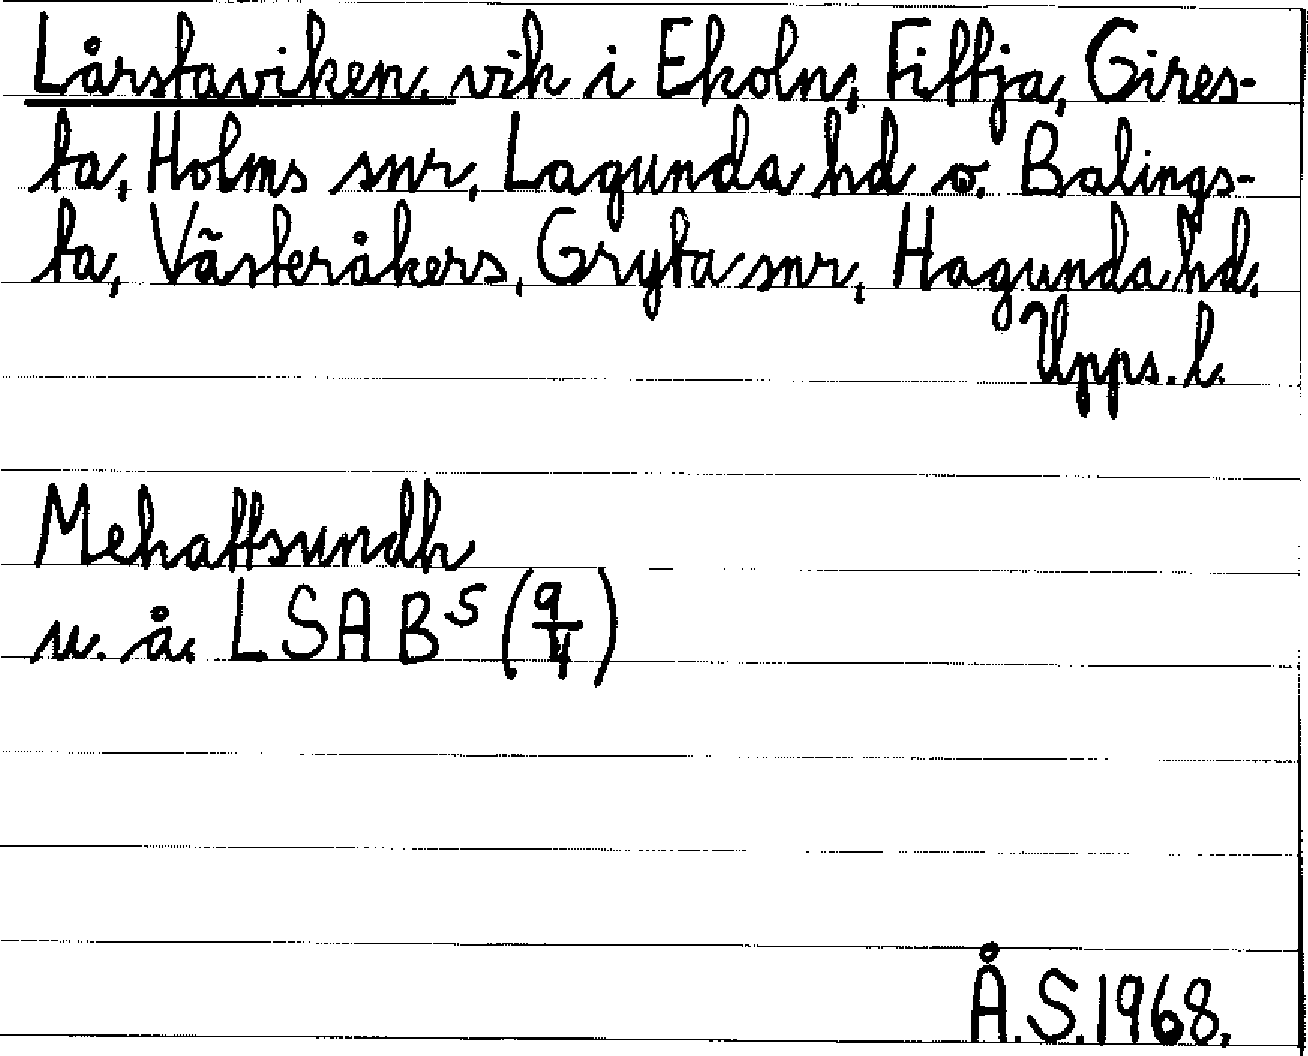 Lårstaviken, vik i Ekoln, Fittja, Gires-
ta, Holms snr, Lagunda hd o. Balings-
ta, Västeråkers, Gryta snr, Hagunda hd,
Upps. l.
Mehattsundh
u. å. LSA B⁵ (9/4)
Å.S. 1968.